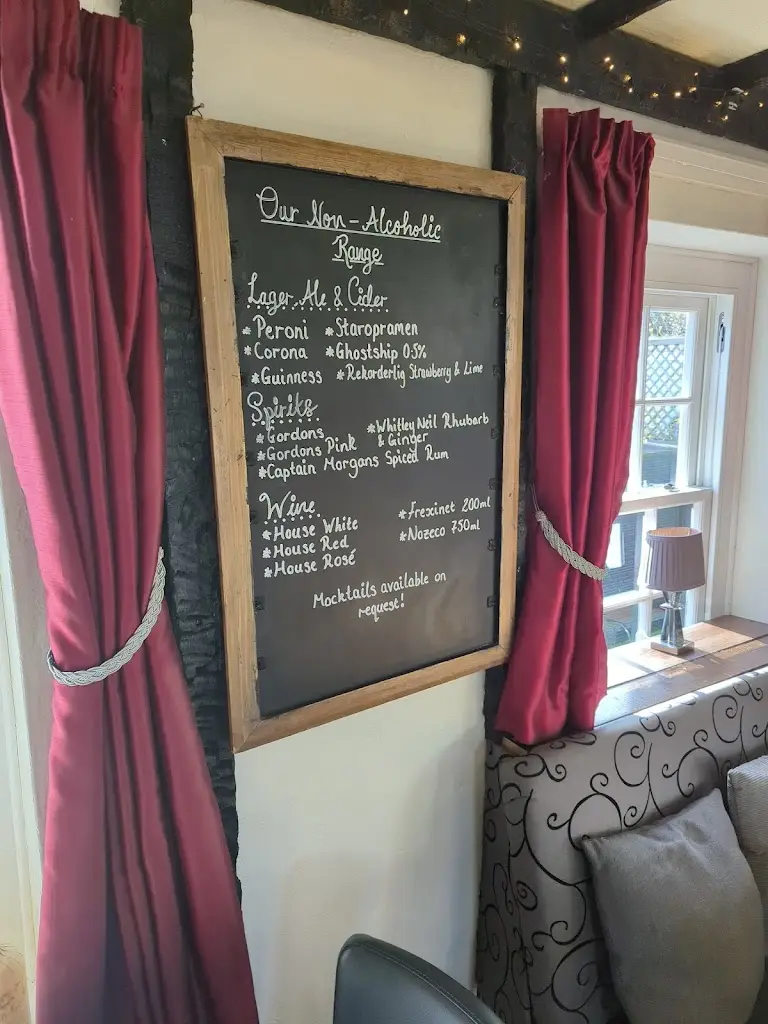 Our Non-Alcoholic
Range
Lager, Ale & Cider
*Peroni *Staropramen
*Corona *Ghostship 0.5%
*Guinness *Rekorderlig Strawberry & Lime
Spirits
*Gordons *Whitley Neil Rhubarb
*Gordons Pink & Ginger
*Captain Morgans Spiced Rum
Wine
*House White *Frexinet 200ml
*House Red *Nozeco 750ml
*House Rosé
Mocktails available on
request!